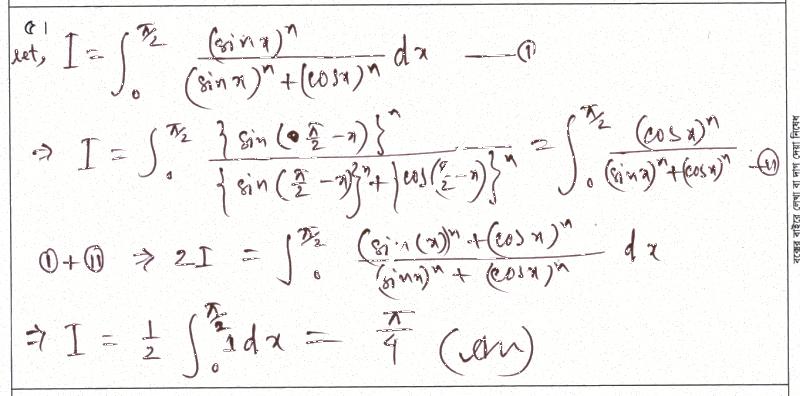 ৫।
let, I = ∫₀^{π/2} (sin x)^n / ((sin x)^n + (cos x)^n) dx —— (i)
⇒ I = ∫₀^{π/2} {sin(π/2 - x)}^n / ({sin(π/2 - x)}^n + {cos(π/2 - x)}^n) = ∫₀^{π/2} (cos x)^n / ((sin x)^n + (cos x)^n) — (ii)
(i) + (ii) ⇒ 2I = ∫₀^{π/2} ((sin(x))^n + (cos x)^n) / ((sin x)^n + (cos x)^n) dx
⇒ I = 1/2 ∫₀^{π/2} 1 dx = π/4
বক্সের বাইরে লেখা বা দাগ দেয়া নিষেধ